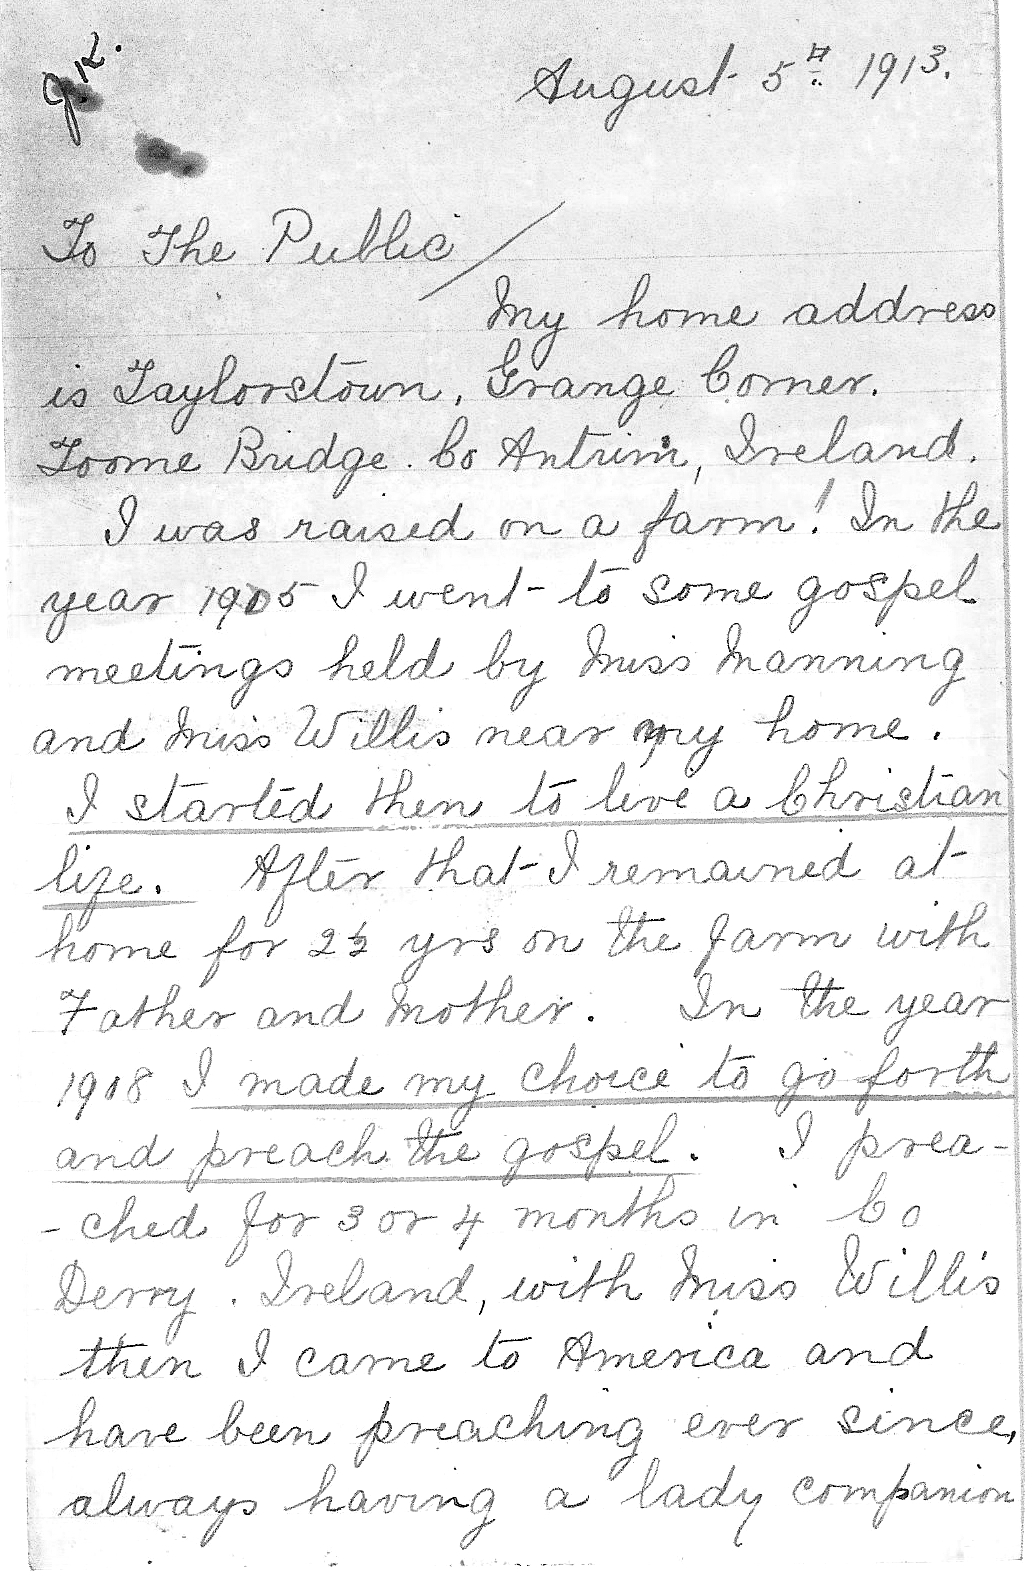 August 5th 1913.
To The Public /
My home address
is Taylorstown, Grange Corner.
Toome Bridge. Co Antrim, Ireland.
I was raised on a farm! In the
year 1905 I went to some gospel
meetings held by Miss Manning
and Miss Willis near my home.
I started then to live a Christian
life. After that I remained at
home for 2½ yrs on the farm with
Father and Mother. In the year
1908 I made my choice to go forth
and preach the gospel. I prea-
-ched for 3 or 4 months in Co
Derry. Ireland, with Miss Willis
then I came to America and
have been preaching ever since,
always having a lady companion